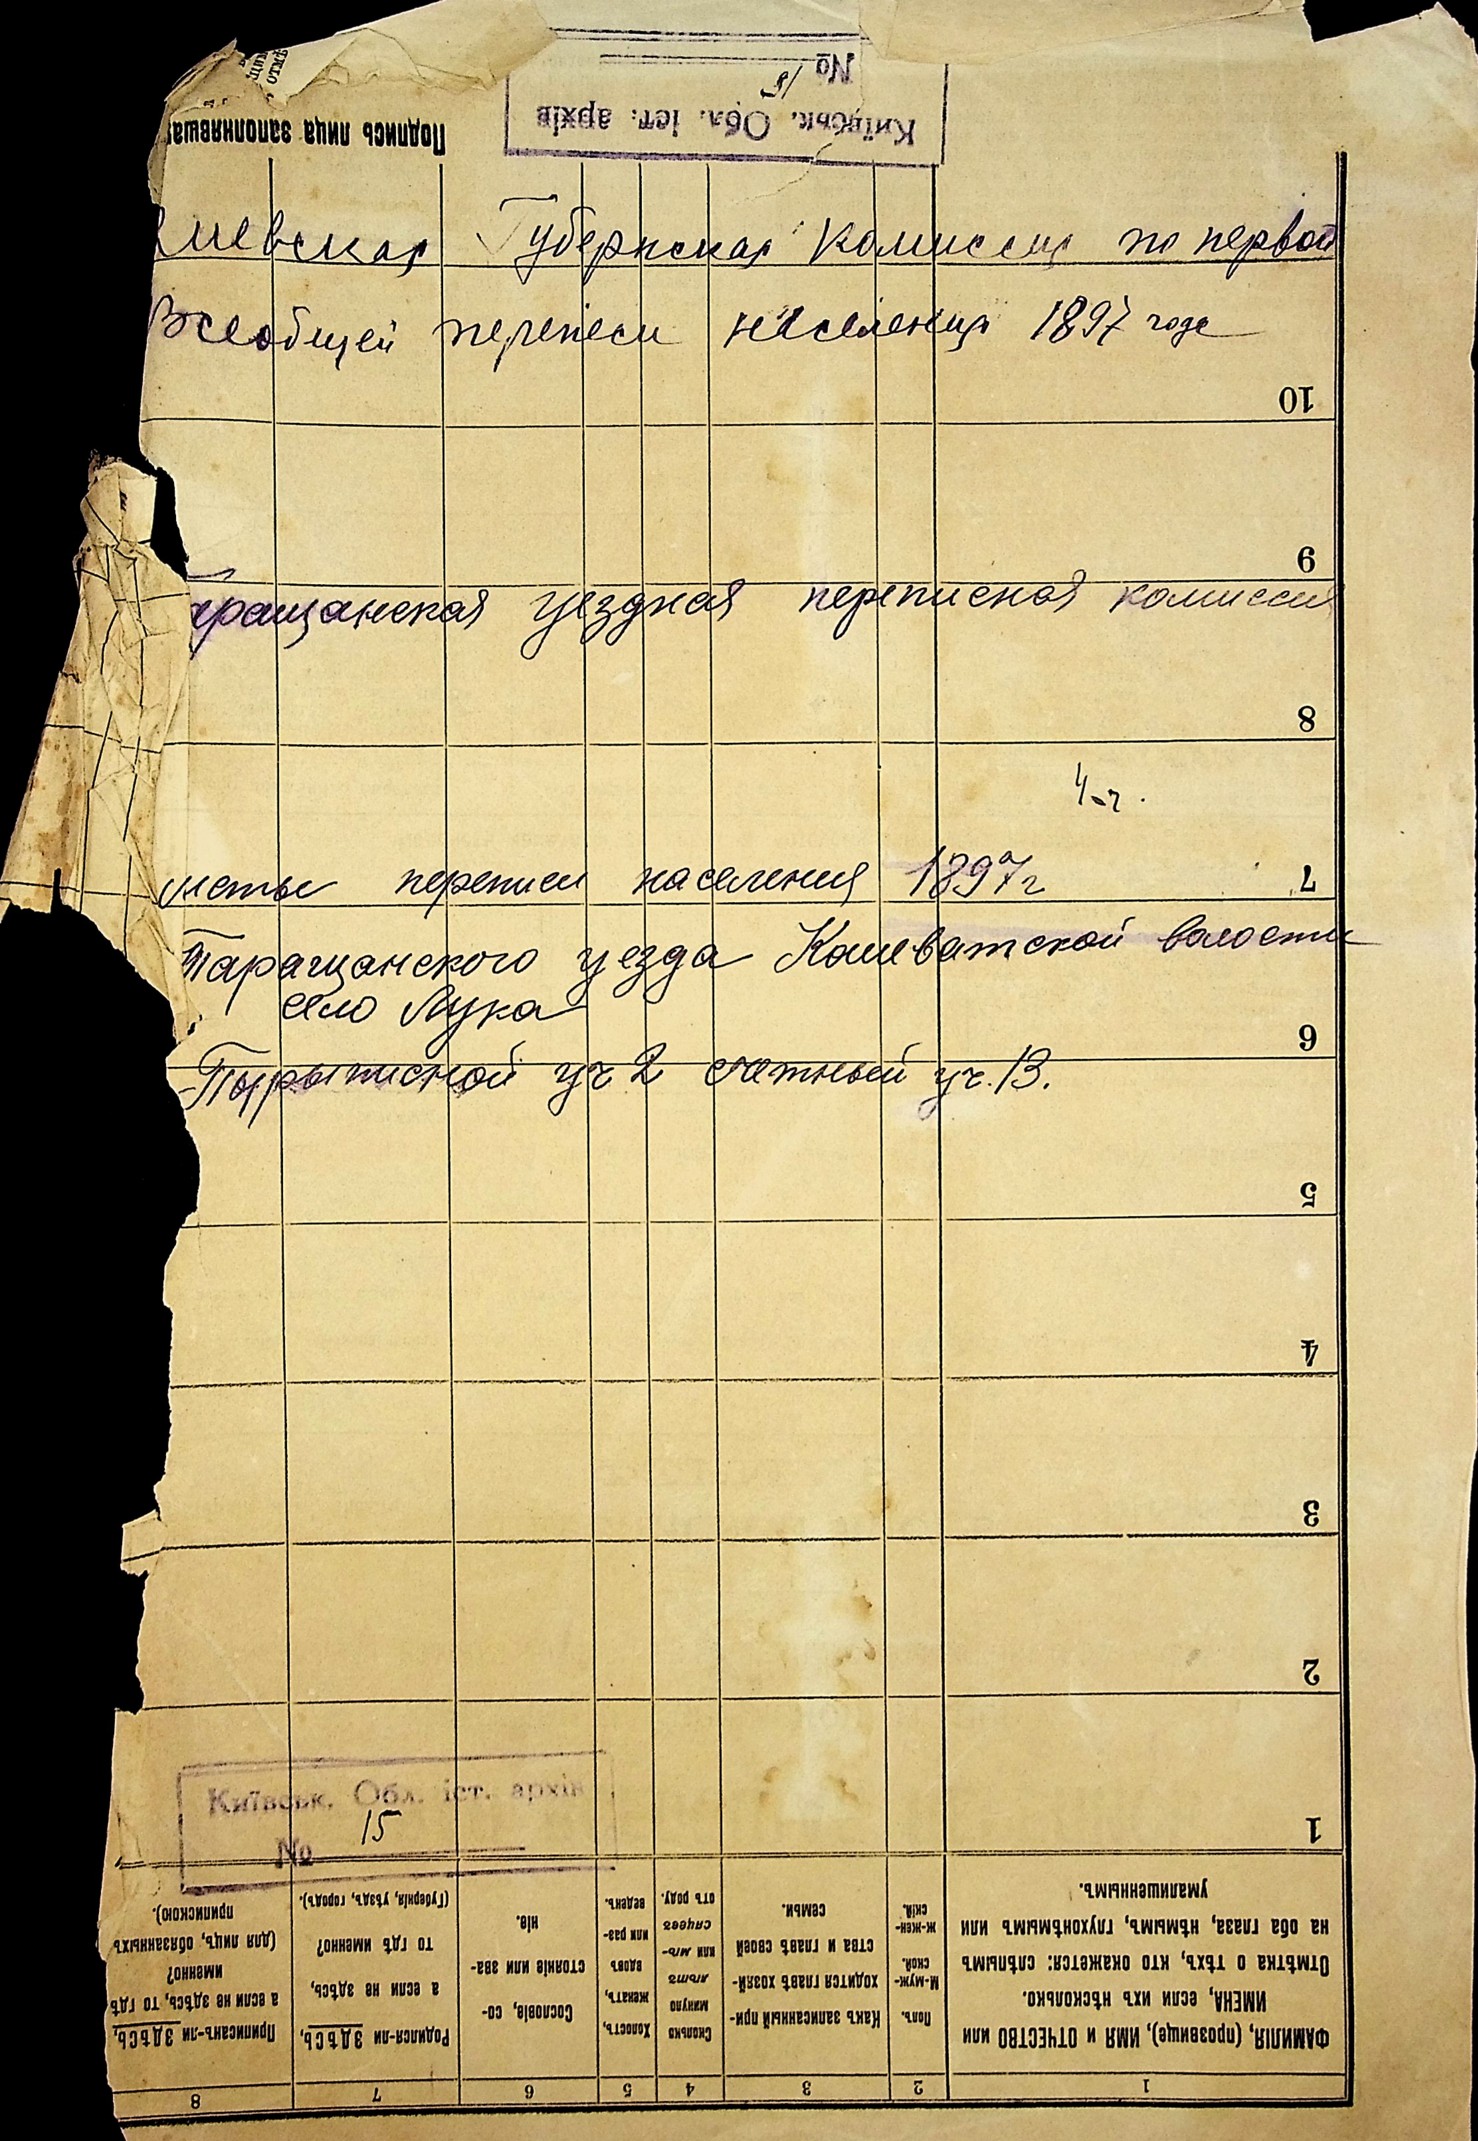 Київськ. Обл. іст. архів
№ 15
Подпись лица заполнявша
Киевская Губернская Комиссия по первой
Всеобщей переписи населения 1897 года
Таращанская уездная переписная комиссия
листы переписи населения 1897 г
Таращанского уезда Кошеватской волости
село Лука
уч 2 счетный уч. 13.
10
9
8
7
6
5
4
3
2
1
Київськ. Обл. іст. архів
№ 15
1
ФАМИЛІЯ, (прозвище), ИМЯ и ОТЧЕСТВО или
ИМЕНА, если ихъ нѣсколько.
Отмѣтка о тѣхъ, кто окажется: слѣпымъ
на оба глаза, нѣмымъ, глухонѣмымъ или
умалишеннымъ.
2
Полъ.
М-муж-
ской.
Ж-жен-
скій.
3
Какъ записанный при-
ходится главѣ хозяй-
ства и главѣ своей
семьи.
4
Сколько
минуло
лѣтъ
или мѣ-
сяцевъ
отъ роду.
5
Холостъ,
женатъ,
вдовъ
или раз-
веденъ.
6
Сословіе, со-
стояніе или зва-
ніе.
7
Родился-ли ЗДѢСЬ,
а если не здѣсь,
то гдѣ именно?
(Губернія, уѣздъ, городъ).
8
Приписанъ-ли ЗДѢСЬ,
а если не здѣсь, то гдѣ
именно?
(для лицъ, обязанныхъ
припискою).